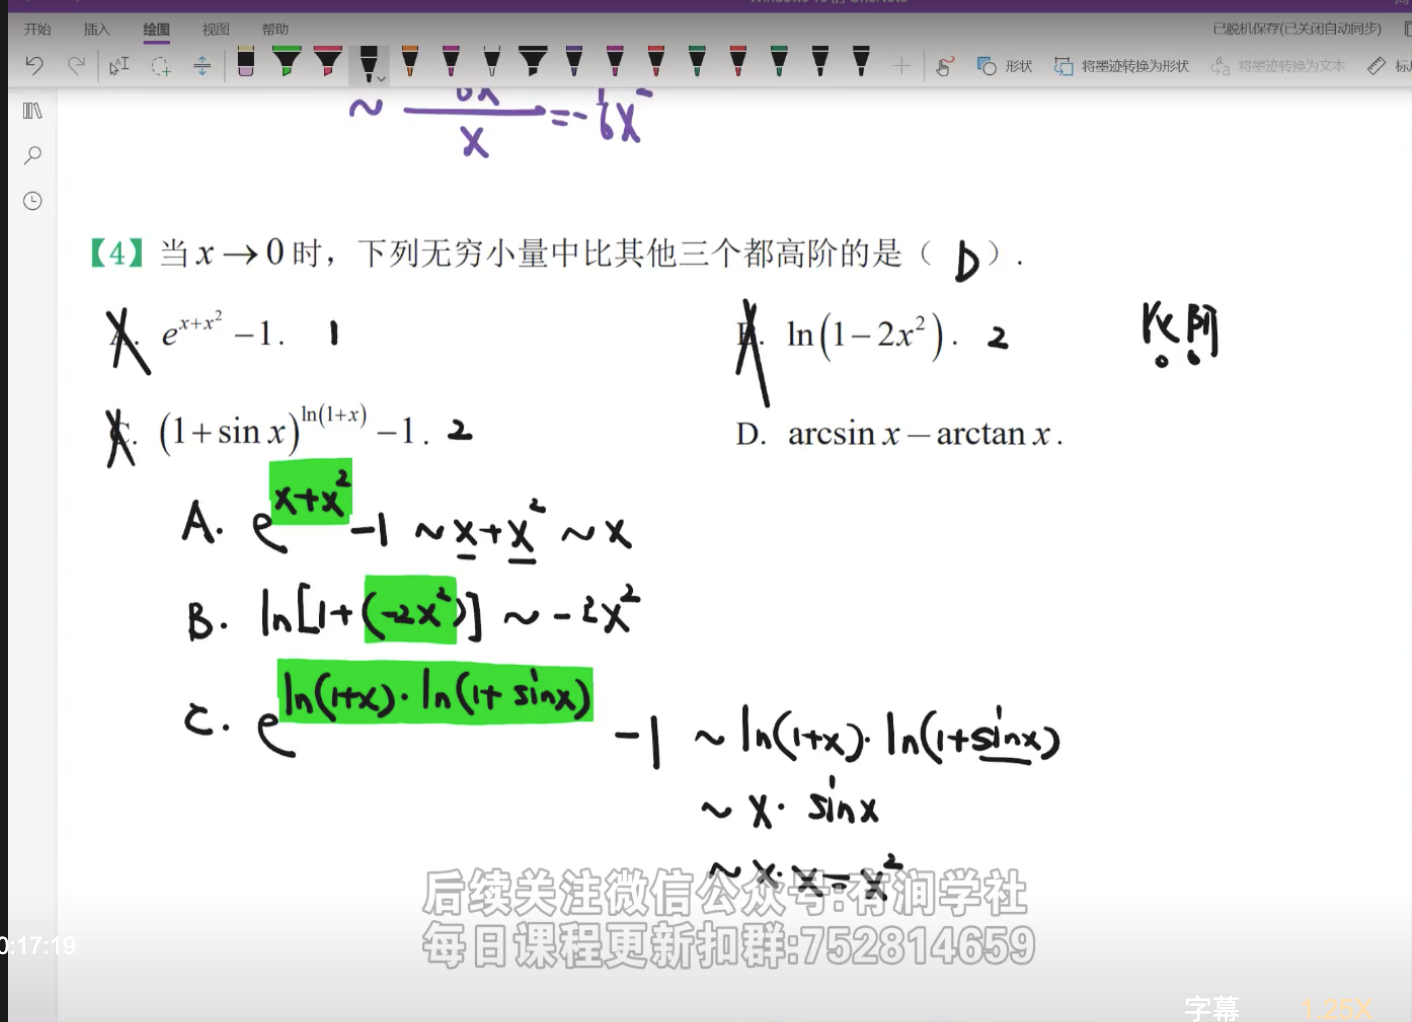 开始 插入 绘图 视图 帮助 已脱机保存(已关闭自动同步)
形状 将墨迹转换为形状 将墨迹转换为文本
x
【4】当 x→0 时，下列无穷小量中比其他三个都高阶的是（ D ）.
e^{x+x^2} −1. 1
ln(1−2x^2). 2
C. (1+sin x)^{ln(1+x)} −1. 2
D. arcsin x − arctan x.
A. e^{x+x^2} −1 ~ x+x^2 ~ x
B. ln[1+(−2x^2)] ~ −2x^2
C. e^{ln(1+x)·ln(1+sinx)} −1 ~ ln(1+x)·ln(1+sinx)
~ x·sinx
~ x·x=x^2
后续关注微信公众号:有润学社
每日课程更新扣群:752814659
0:17:19
字幕 1.25X